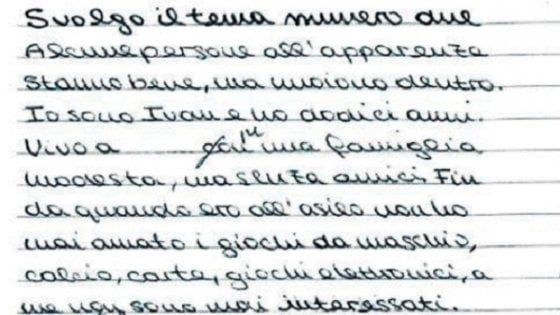 Svolgo il tema numero due
Alcune persone all'apparenza
stanno bene, ma muoiono dentro.
Io sono Ivan e ho dodici anni.
Vivo a in una famiglia
modesta, ma senza amici. Fin
da quando ero all'asilo non ho
mai amato i giochi da maschio,
calcio, carte, giochi elettronici, a
me non sono mai interessati.